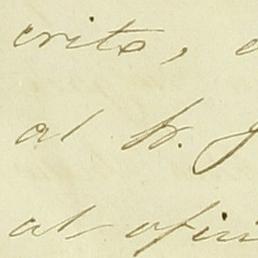 crito,
al Sr.
al ofici